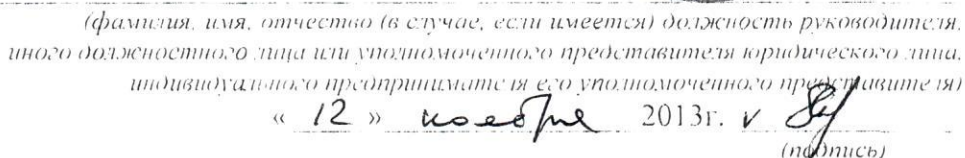 (фамилия, имя, отчество (в случае, если имеется) должность руководителя,
иного должностного лица или уполномоченного представителя юридического лица,
индивидуального предпринимателя его уполномоченного представителя)
« 12 » ноября 2013г. v
(подпись)